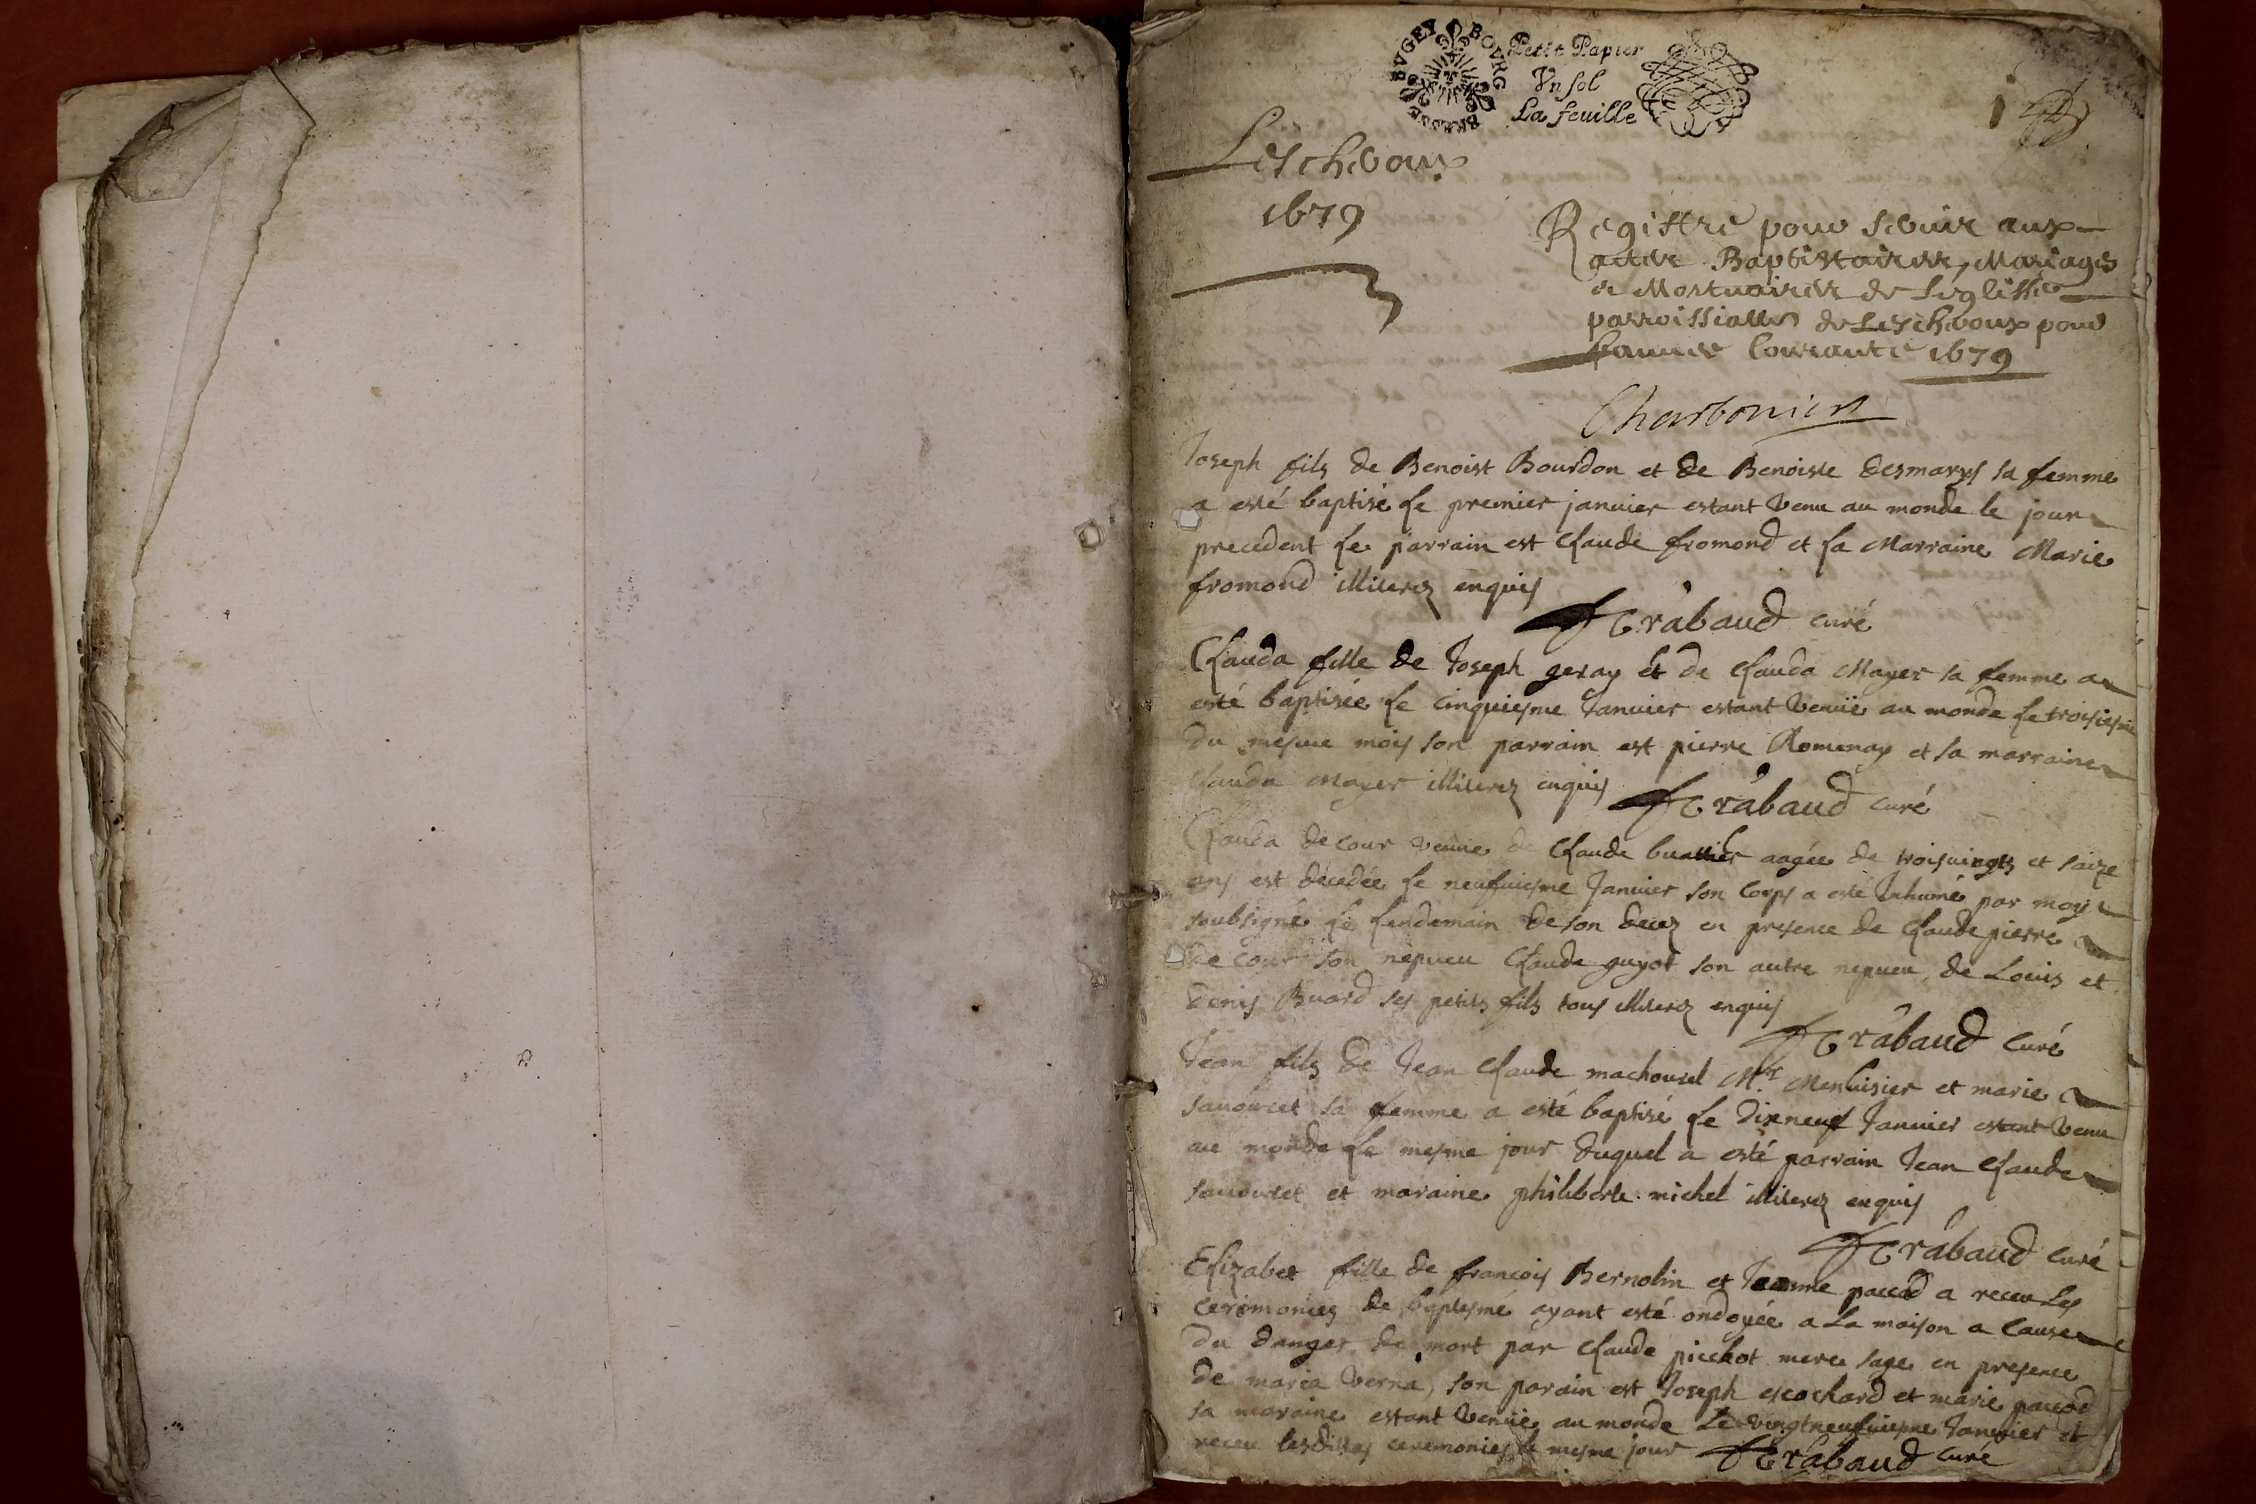 BVGEY BOVRG BRESSE
Petit Papier
Vn sol
La feuille
1
Lescheoux
1679
Registre pour servir aux
actes Baptistaires, Mariages
et Mortuaires de Leglisse
parroissialle de Lescheoux pour
Lannee Courante 1679
Charbonier
Joseph fils de Benoist Bourdon et de Benoiste desmarys sa femme
a esté baptisé le premier januier estant venu au monde le jour
precedent le parrain est Claude fromond et la Marraine Marie
fromond illiterez enquis
Trabaud curé
Clauda fille de Joseph geray et de Clauda Mayer sa femme a
esté baptisée le cinquiesme Januier estant venüe au monde le troisiesme
du mesme mois son parrain est pierre Romenay et sa marraine
Clauda Mayer illiterez enquis
Trabaud curé
Clauda de cour veuue de Claude buattier aagée de troisuingts et saize
ans est décedée le neufuiesme Januier son corps a esté Inhumé par moy
soubsigné le lendemain de son decez en presence de Claude pierre
de cour son nepueu Claude guyot son autre nepueu, de Louis et
denis Buard ses petits fils tous illiterez enquis
Trabaud curé
Jean fils de Jean Claude machourel Mre Menuisier et marie
sauouret sa femme a esté baptisé le dixneuf Januier estant venu
au monde le mesme jour duquel a esté parrain Jean Claude
sauouret et maraine philiberte michel illiterez enquis
Trabaud curé
Elizabet fille de francois Bernolin et Jeanne pacod a receu les
ceremonies de baptesme ayant esté ondoyée a la maison a cause
du danger de mort par Claude picchot mere sage en presence
de maria verna, son parain est Joseph escochard et marie pacod
sa maraine estant venüe au monde le vingtneufuiesme Januier et
receu lesdittes ceremonies le mesme jour
Trabaud curé